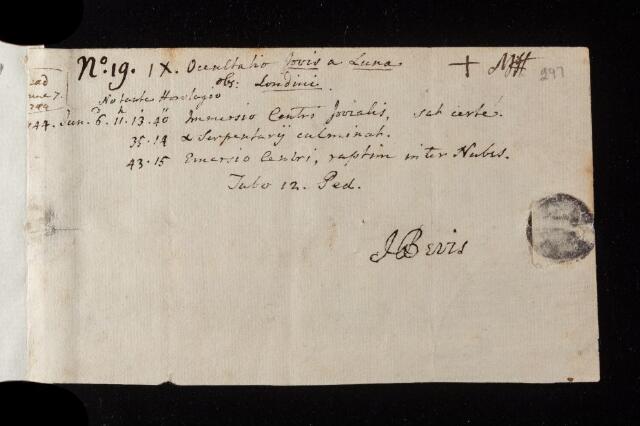 No. 19. IX. Occultatio Jovis a Luna
obs: Londini.
+
297
ead
une 7.
1744
Notante Horologio
44. Jun. 6. 11h. 13. 40 Immersio Centri Jovialis, sat certé.
35. 14 α Serpentarij culminat.
43. 15 Emersio Centri, raptim inter Nubes.
Tubo 12. Ped.
J Bevis